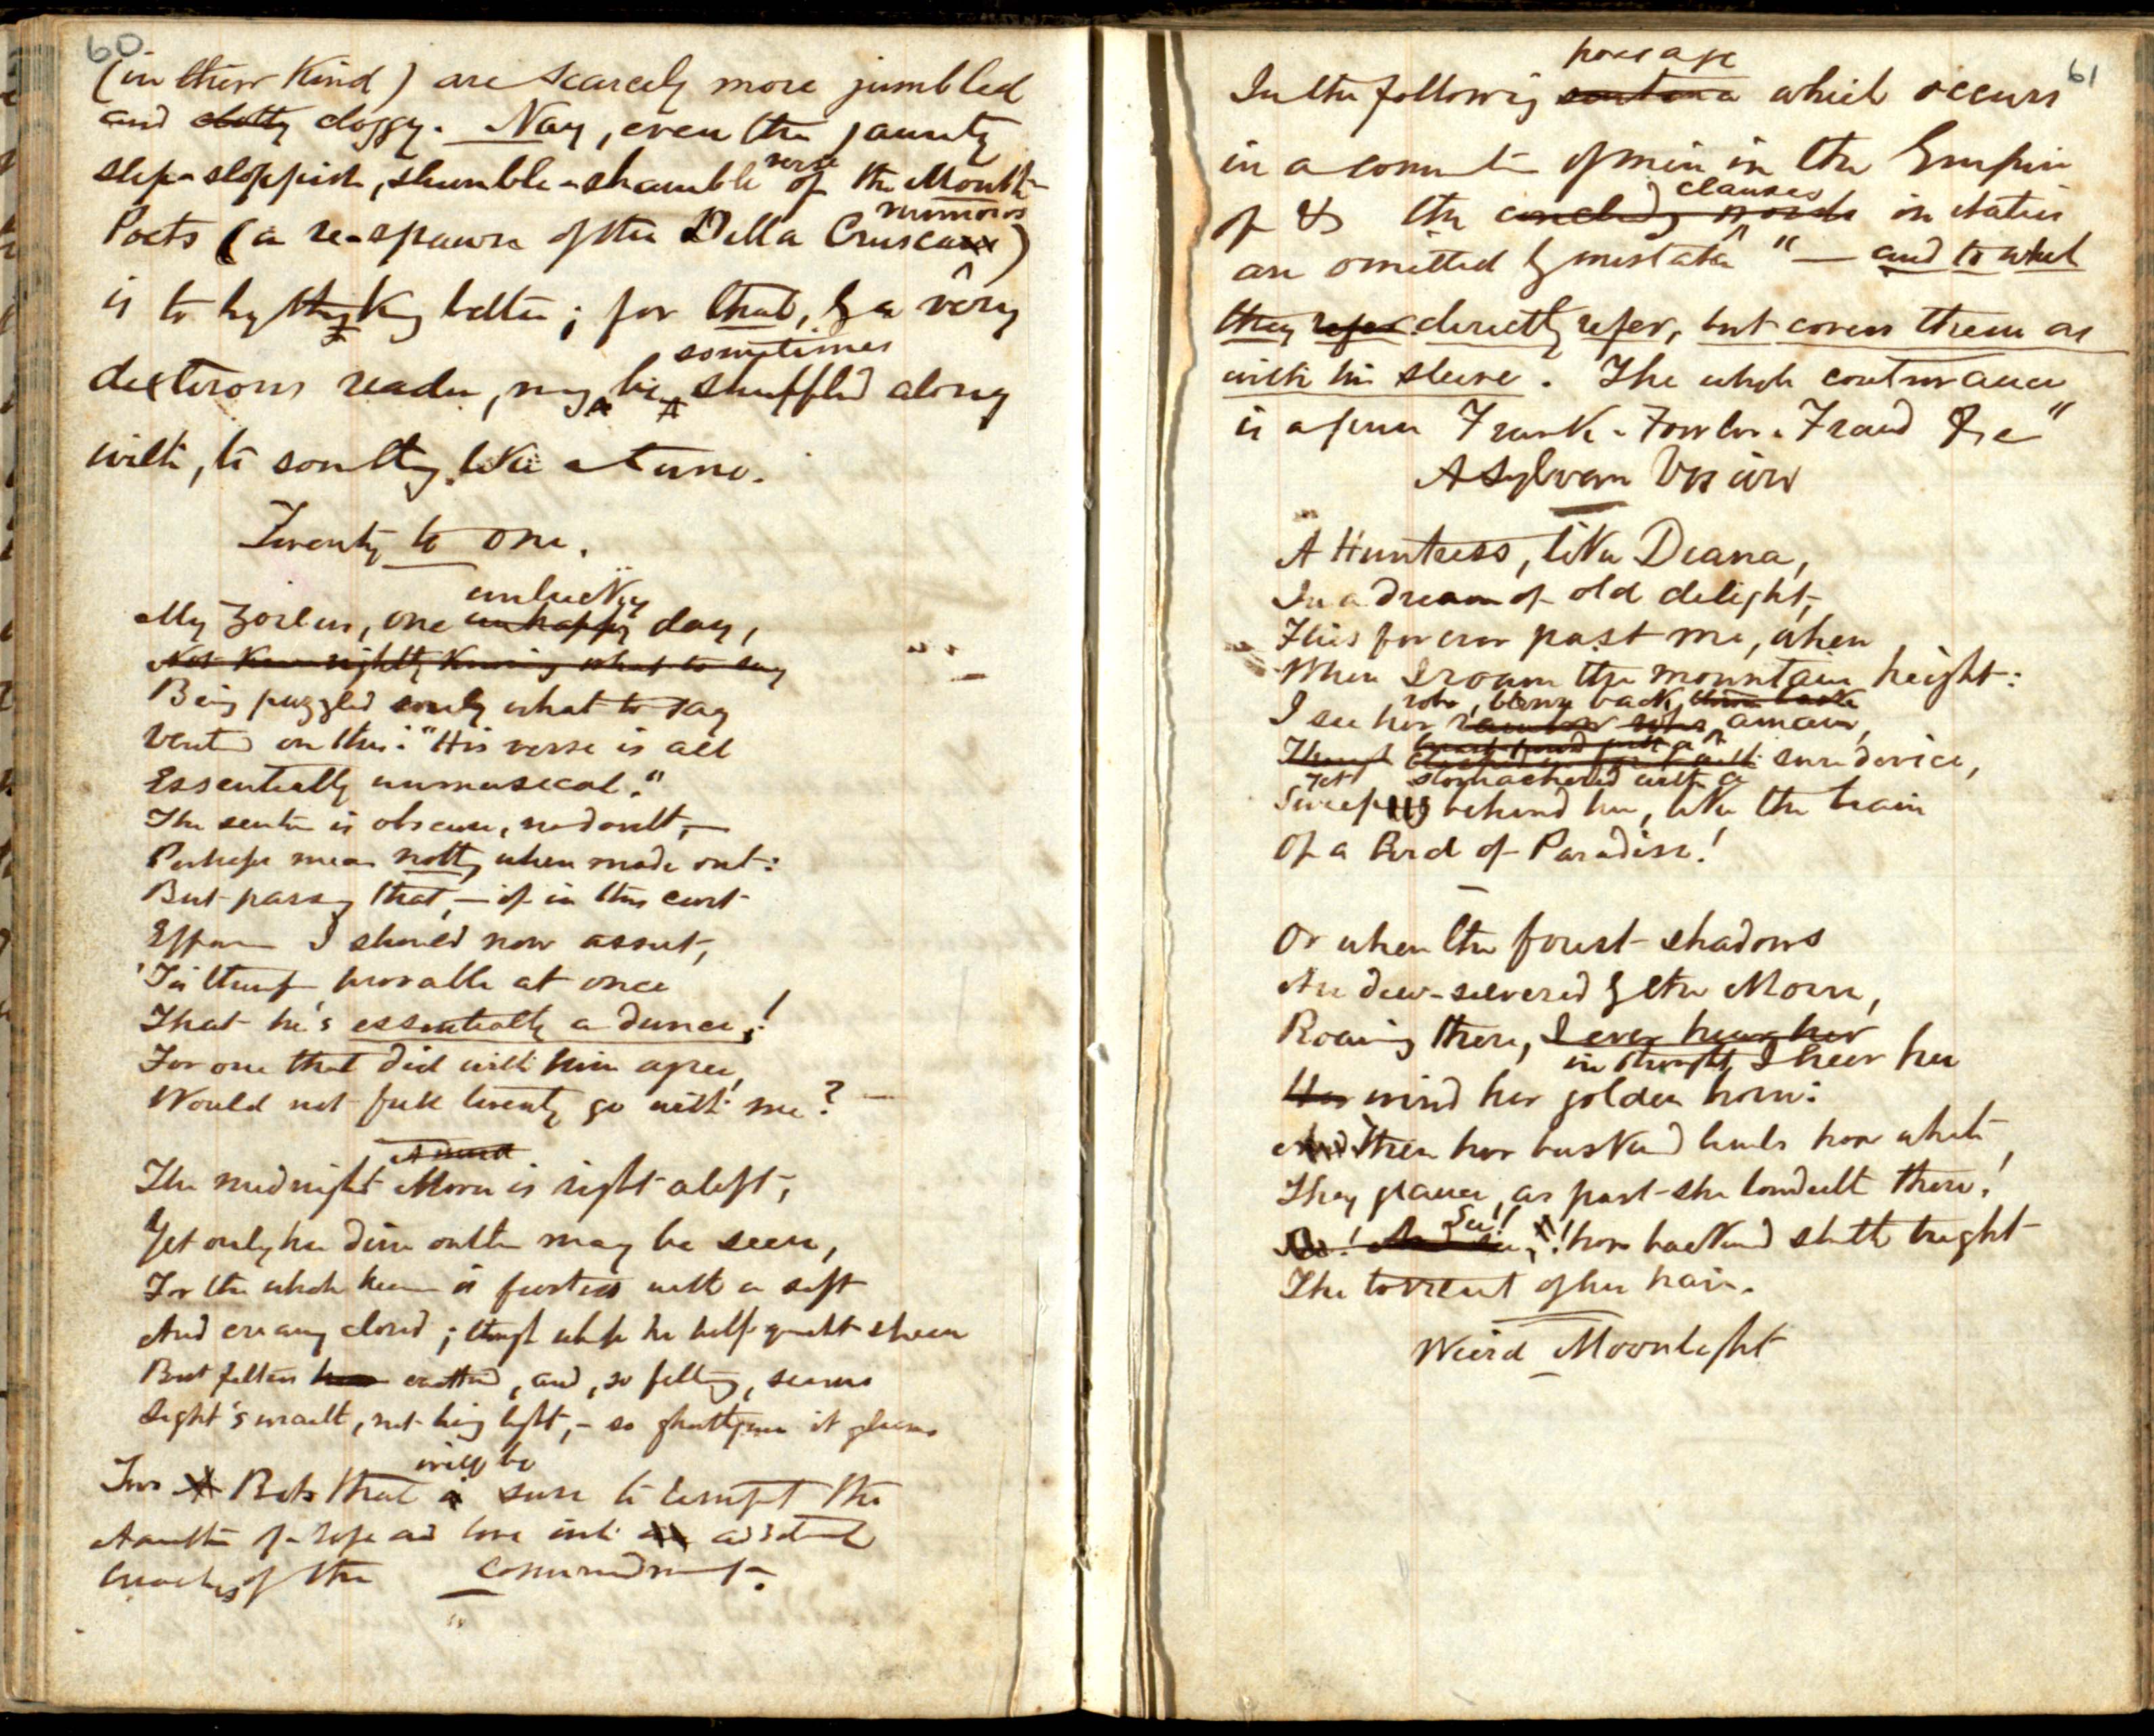 60
(in their kind) are scarcely more jumbled
and clotty cloggy. Nay, even the jaunty
slip-sloppish, shamble-shamble verse of the Mouth-
Poets (a re-spawn of the Della Cruscan
is to my thinking better; for that, by a very
dexterous reader, may be sometimes shuffled along
with, to something like a tune.
Twenty to one.
My Zoilus, one unhappy unlucky day,
Not rightly knowing what to say
Being puzzled sorely what to say
Vented on this: "His verse is all
Essentially unmusical."
The sentence is obscure, no doubt,—
Perhaps means nothing when made out:
But passing that,—if in this curt
I should now assert,
'Tis though provable at once
That he's essentially a dunce!
For one that did with him agree,
Would not full twenty go with me? —
The midnight Moon is right aloft,
Yet only her dim outline may be seen,
For the whole heaven is with a soft
And creamy cloud; though while her half-quench'd sheen
But filters earthward, and, so filtering, seems
Light's wraith, not living light,— so it gleams
Two Bets that will be sure to tempt the
of the
61
In the following sentence passage which occurs
in a of mine in the Empire
of the concluding words clauses in italics
are omitted by mistake "— and to which
they refer directly refer, but covers them as
with his sleeve. The whole contrivance
is a pure Frank-Fowler-Fraud &c"
A Sylvan Vision
A Huntress, like Diana,
In a dream of old delight,
Flies for ever past me, when
When I roam the mountain height:
I see her rainbow robe, blown back amain,
Though Yet stomachered with a sure device,
Sweeping behind her, like the train
Of a Bird of Paradise!
Or when the forest shadows
Are dew-silvered by the Moon,
Roaming there, I ever hear her
in thought, I hear her
Her wind her golden horn:
And then her buskined limbs how white
They glance, as past she boundeth there!
And see, See! how backward shineth bright
The torrent of her hair.
Weird Moonlight